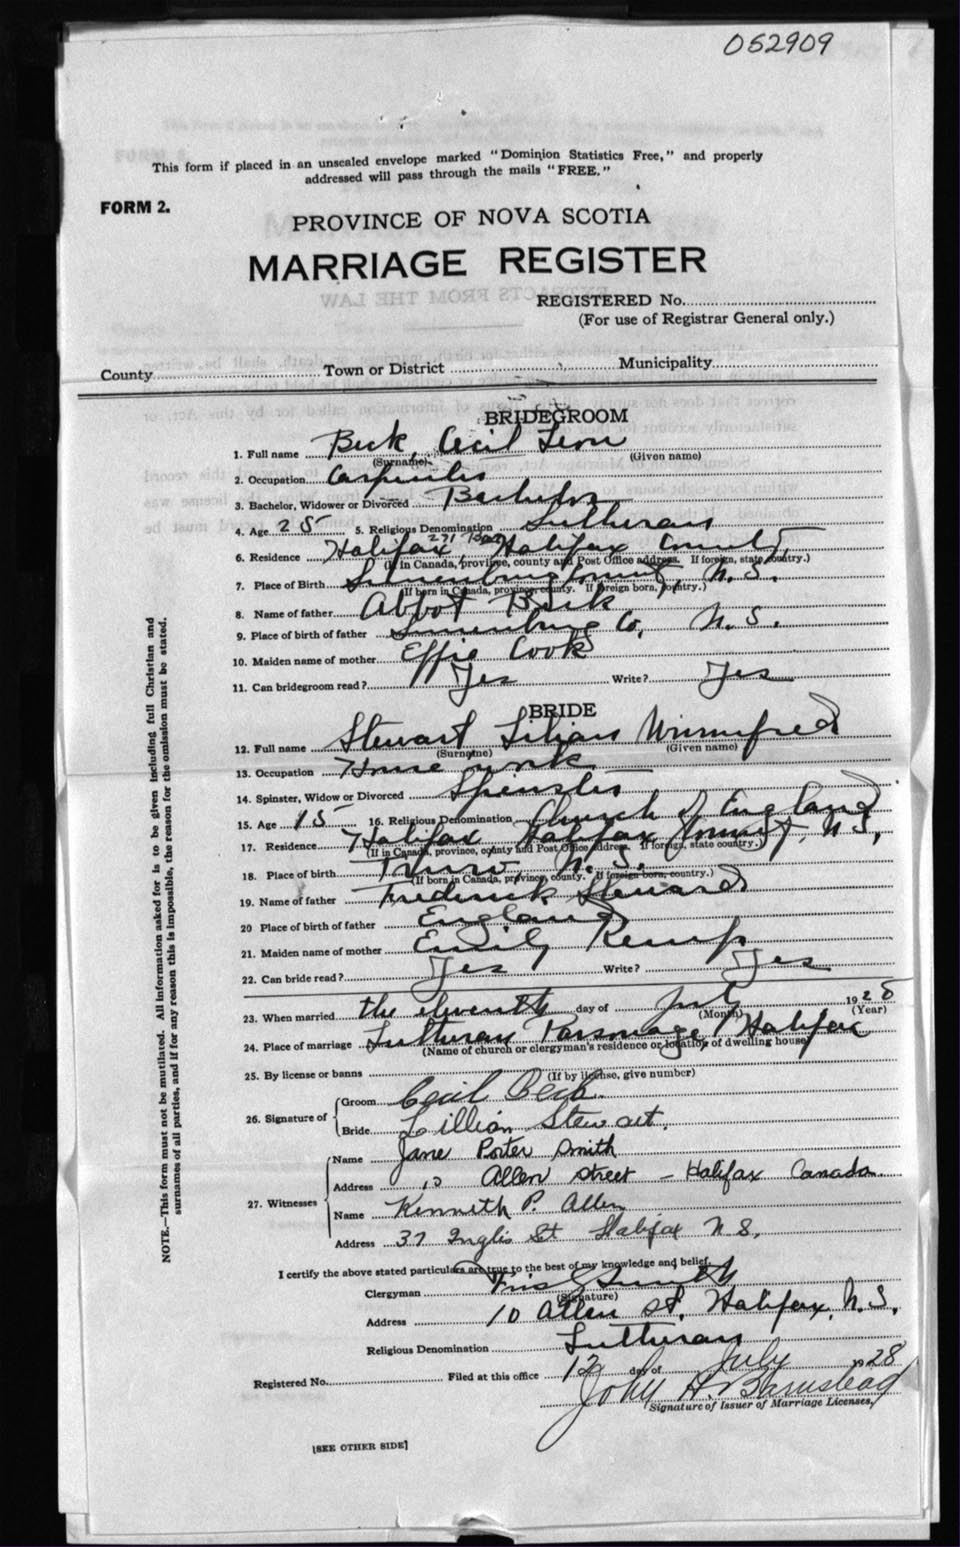 052909
This form if placed in an unsealed envelope marked "Dominion Statistics Free," and properly
addressed will pass through the mails "FREE."
FORM 2.
PROVINCE OF NOVA SCOTIA
MARRIAGE REGISTER
EXTRACTS FROM THE LAW
REGISTERED No.
(For use of Registrar General only.)
County Town or District Municipality
BRIDEGROOM
1. Full name Beck, Cecil Leon
(Surname) (Given name)
2. Occupation Carpenter
3. Bachelor, Widower or Divorced Bachelor
4. Age 25 5. Religious Denomination Lutheran
6. Residence Halifax, Halifax County,
(If in Canada, province, county and Post Office address. If foreign, state country.)
7. Place of Birth Lunenburg County, N.S.
(If born in Canada, province, county. If foreign born, country.)
8. Name of father Abbot Beck
9. Place of birth of father Lunenburg Co, N.S.
10. Maiden name of mother Effie Cook
11. Can bridegroom read? Yes Write? Yes
BRIDE
12. Full name Stewart Lilian Winnifred
(Surname) (Given name)
13. Occupation House work
14. Spinster, Widow or Divorced Spinster
15. Age 18 16. Religious Denomination Church of England
17. Residence Halifax Halifax County, N.S.
(If in Canada, province, county and Post Office address. If foreign, state country.)
18. Place of birth Truro, N.S.
(If born in Canada, province, county. If foreign born, country.)
19. Name of father Frederick Steward
20 Place of birth of father England
21. Maiden name of mother Emily Kemp
22. Can bride read? Yes Write? Yes
23. When married the eleventh day of July 1928
(Month) (Year)
24. Place of marriage Lutheran Parsonage, Halifax
(Name of church or clergyman's residence or location of dwelling house)
25. By license or banns
(If by license, give number)
26. Signature of Groom Cecil Beck.
Bride Lillian Stewart.
27. Witnesses Name Jane Porter Smith
Address 10 Allen Street - Halifax Canada
Name Kenneth P. Allen
Address 37 Inglis St Halifax N.S.
I certify the above stated particulars are true to the best of my knowledge and belief.
Clergyman Smith
(Signature)
Address 10 Allen St, Halifax, N.S.
Religious Denomination Lutheran
Registered No. Filed at this office 12 day of July 1928
John H. Barnstead
Signature of Issuer of Marriage Licenses,
[SEE OTHER SIDE]
NOTE.—This form must not be mutilated. All information asked for is to be given including full Christian and
surnames of all parties, and if for any reason this is impossible, the reason for the omission must be stated.